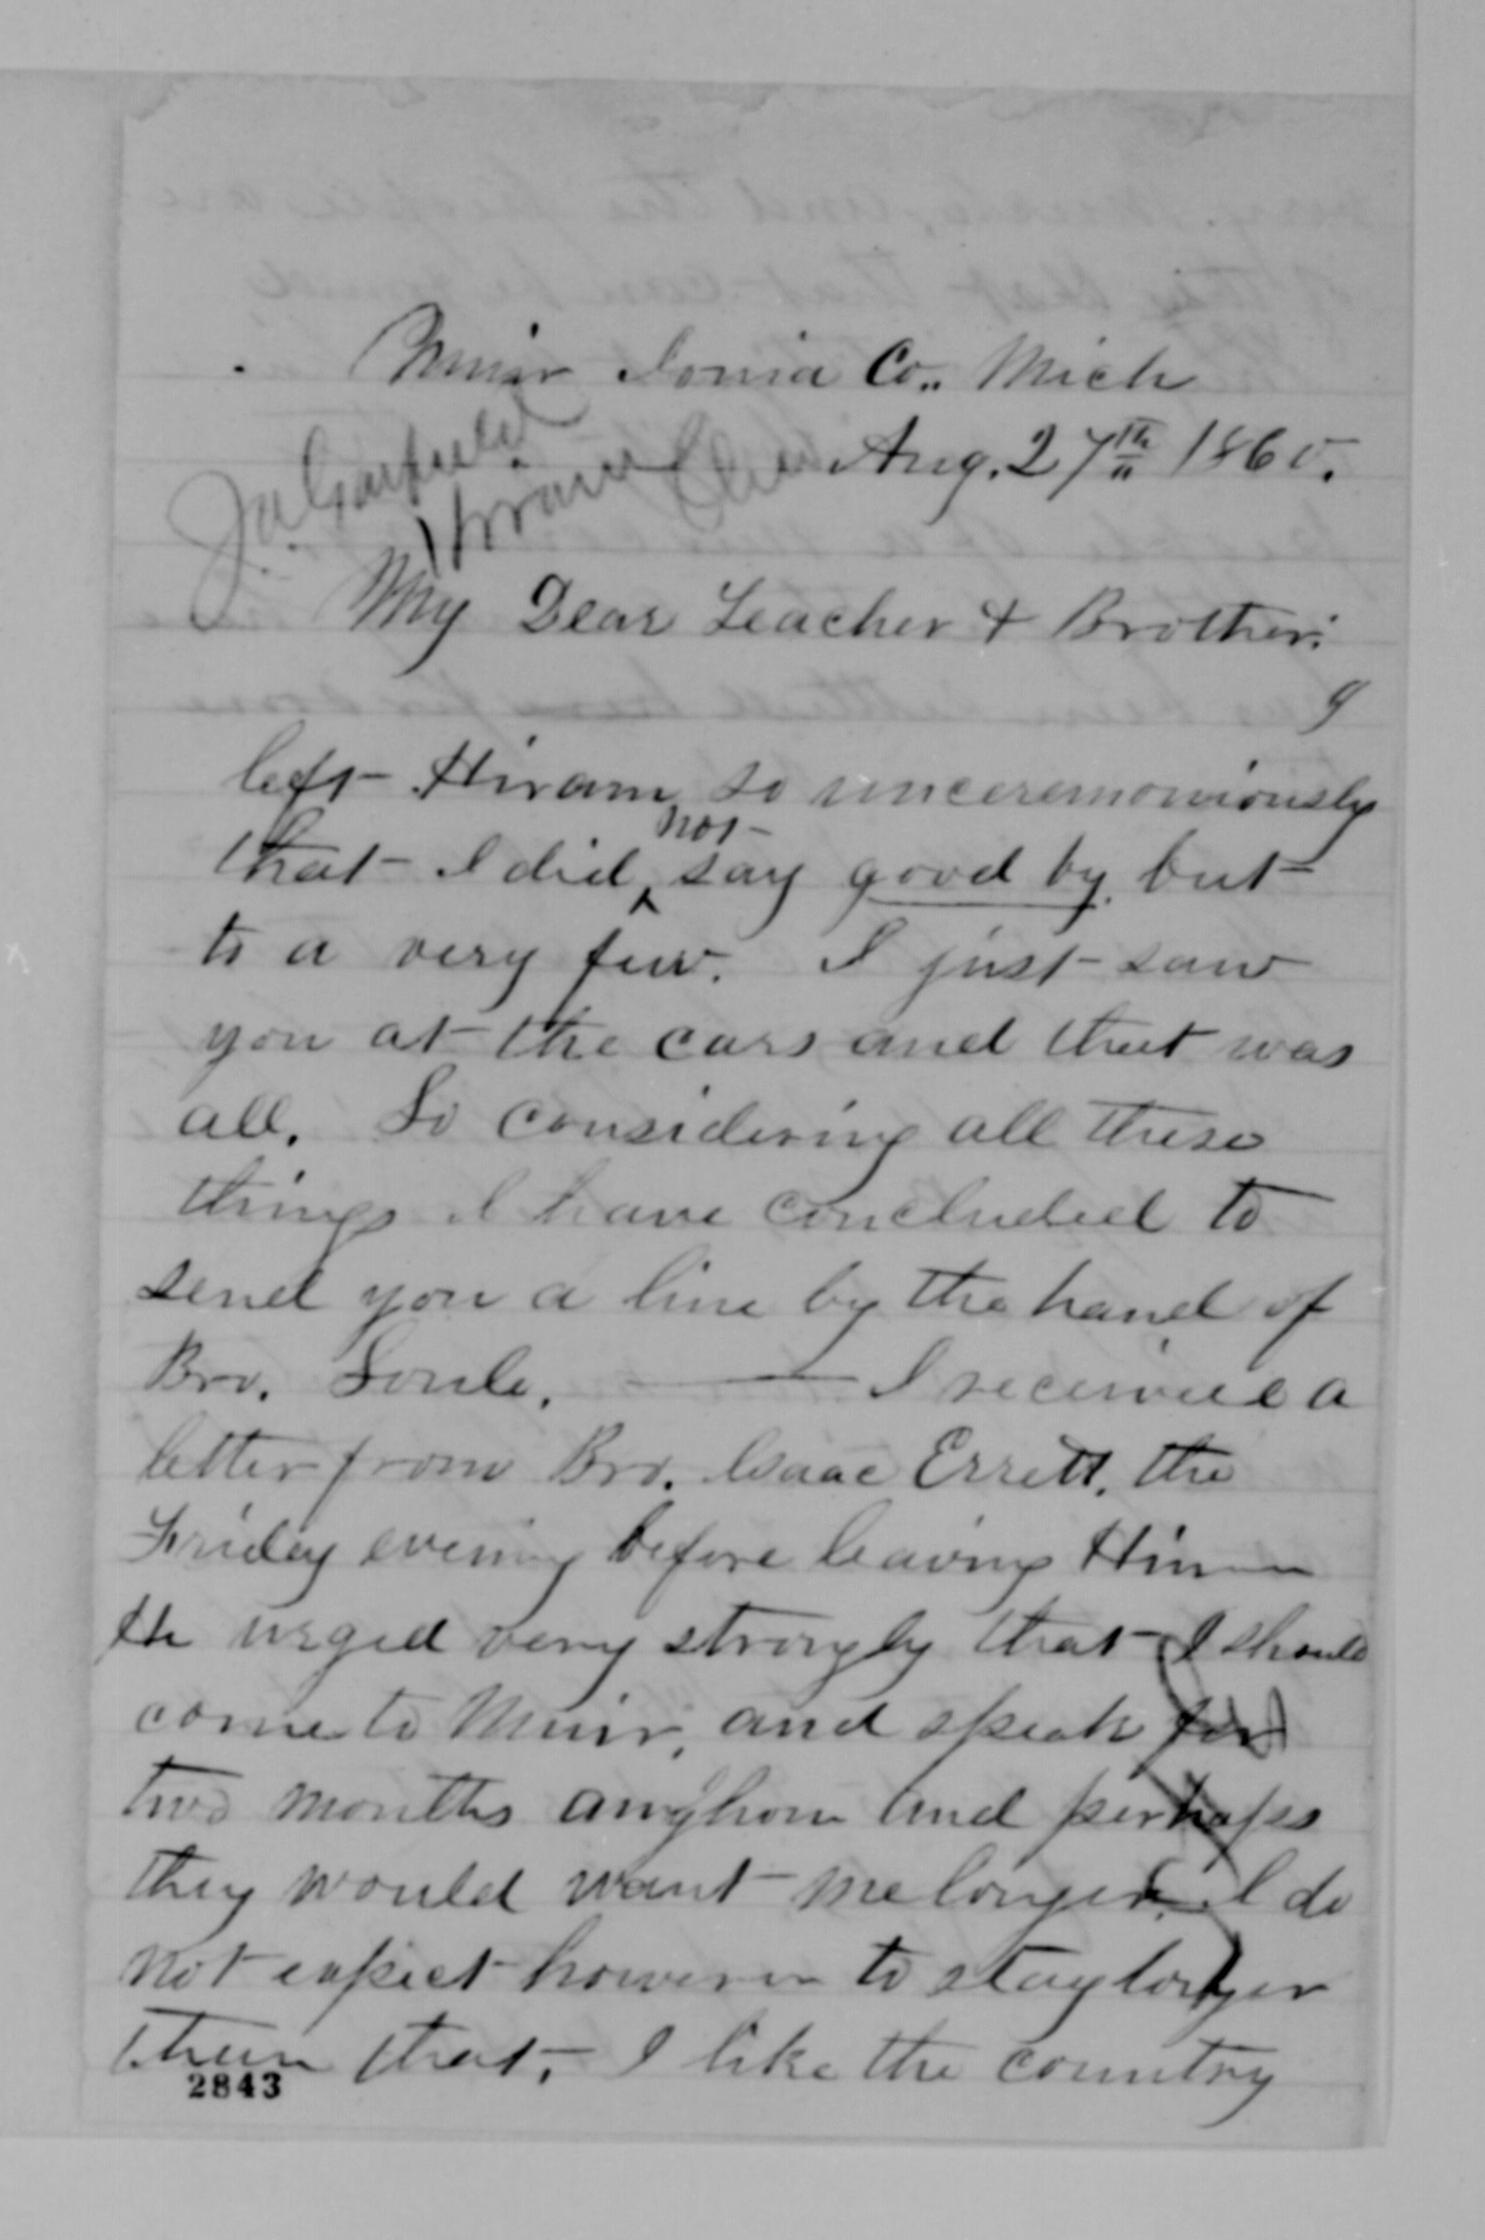 Muir Ionia Co., Mich
Aug. 27th 1860.
J. A. Garfield
Hiram Ohio
My Dear Teacher & Brother:
I
left Hiram so unceremoniously
that I did not say good by but
to a very few. I just saw
you at the cars and that was
all. So considering all these
things I have concluded to
send you a line by the hand of
Bro. Soule. — I received a
letter from Bro. Isaac Errett, the
Friday evening before leaving Hiram
He urged very strongly that I should
come to Muir, and speak for
two months anyhow and perhaps
they would want me longer. I do
not expect however to stay longer
than that. I like the country
2843